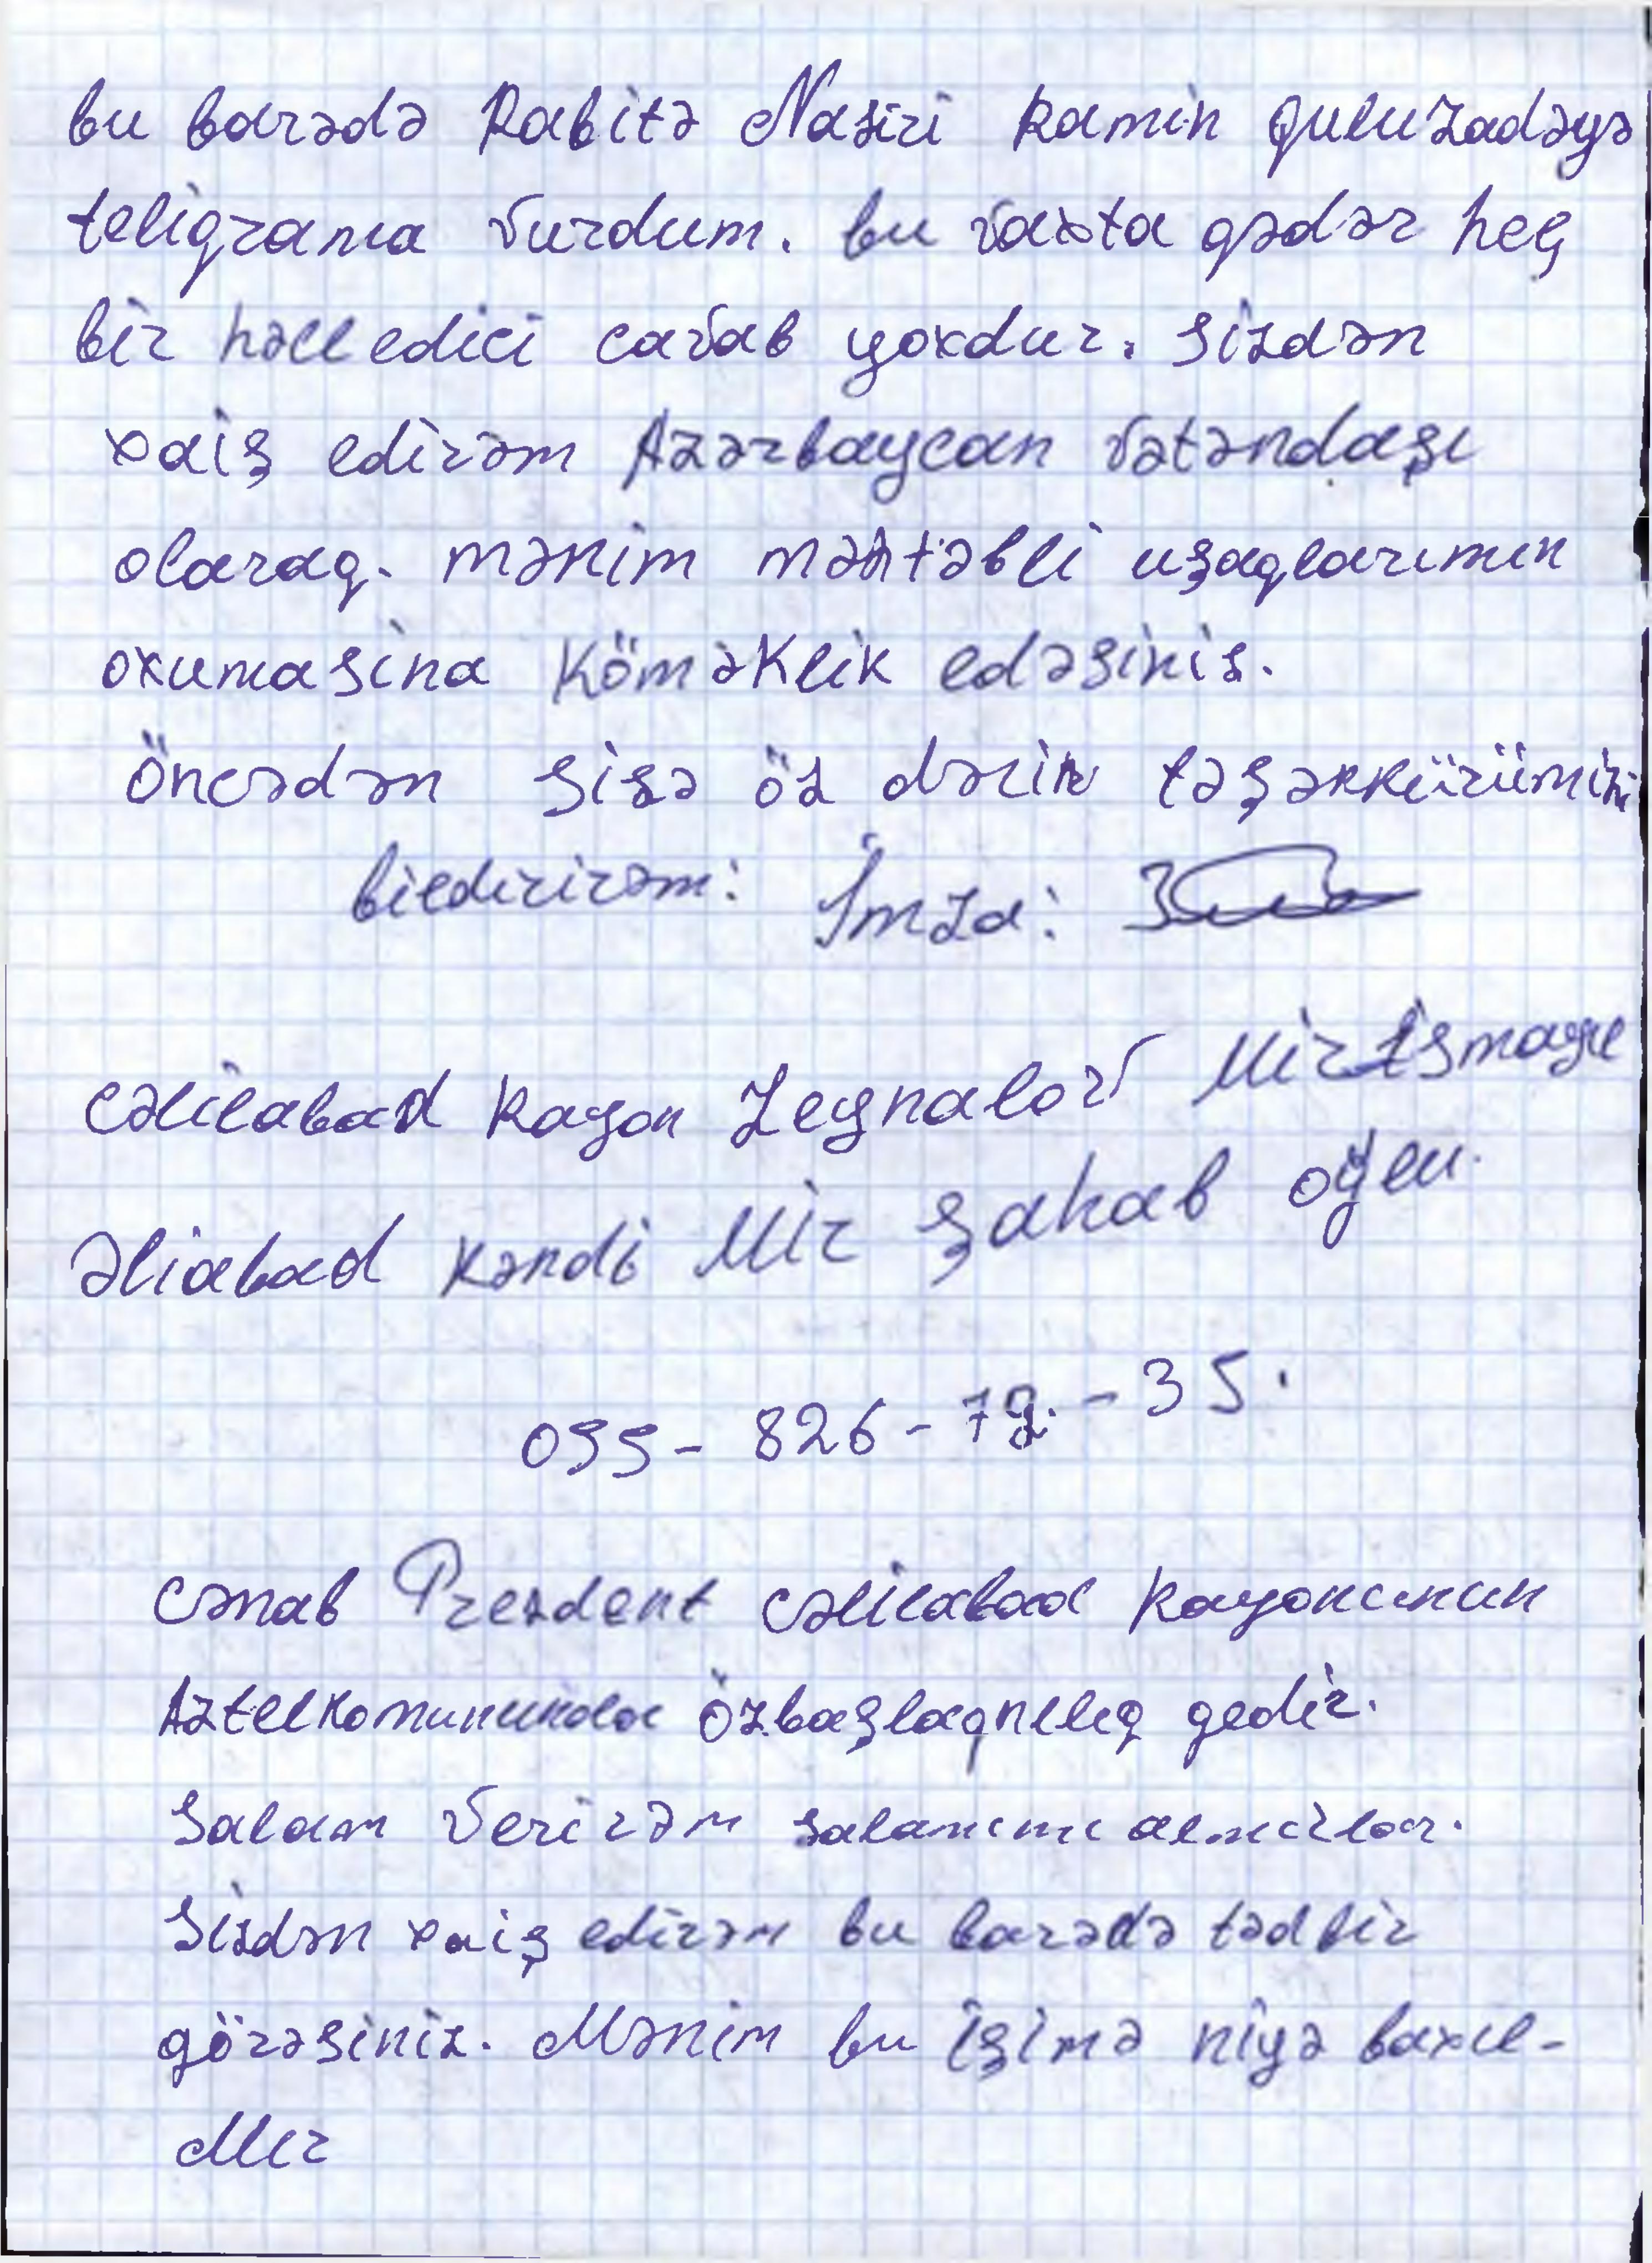 bu barədə Rabitə Naziri Ramin Quluzadəyə
teligrama vurdum. bu vaxta qədər heç
bir həll edici cavab yoxdur. Sizdən
xaiş edirəm Azərbaycan vətəndaşı
olaraq. mənim məktəbli uşaqlarımın
oxumasina köməklik edəsiniz.
Öncədən sizə öz dərin təşəkkürümüzü
bildirirəm: İmza:
Cəlilabad Rayon Zeynalov Mirismayıl
Əliabad kəndi Mir Şahab oğlu.
055-826-79-35.
Cənab Prezdent Cəlilabad Rayonunun
Aztelkomununda özbaşlaqnılıq gedir.
Salam verirəm salamımı almırlar.
Sizdən xaiş edirəm bu barədə tədbir
görəsiniz. Mənim bu işimə niyə baxıl-
mır